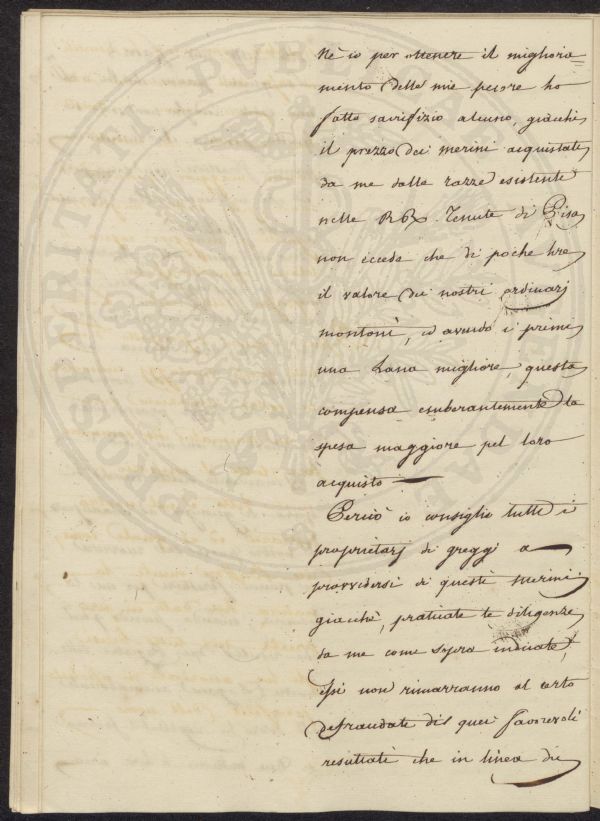 Nè io per ottenere il migliora=
mento delle mie pecore ho
fatto sacrifizio alcuno, giacchè
il prezzo dei merini acquistati
da me dalle razze esistenti
nelle RR. Tenute di Pisa
non eccede che di poche lire
il valore dei nostri ordinarj
montoni, ed avendo i primi
una Lana migliore, questa
compensa esuberantemente la
spesa maggiore pel loro
acquisto
Perciò io consiglio tutti i
proprietarj di greggi a
provvedersi di questi merini,
giacchè, praticate le diligenze,
da me come sopra indicate,
essi non rimarranno al certo
defraudati di quei favorevoli
resultati che in linea di
PROSPERITATI PVBL